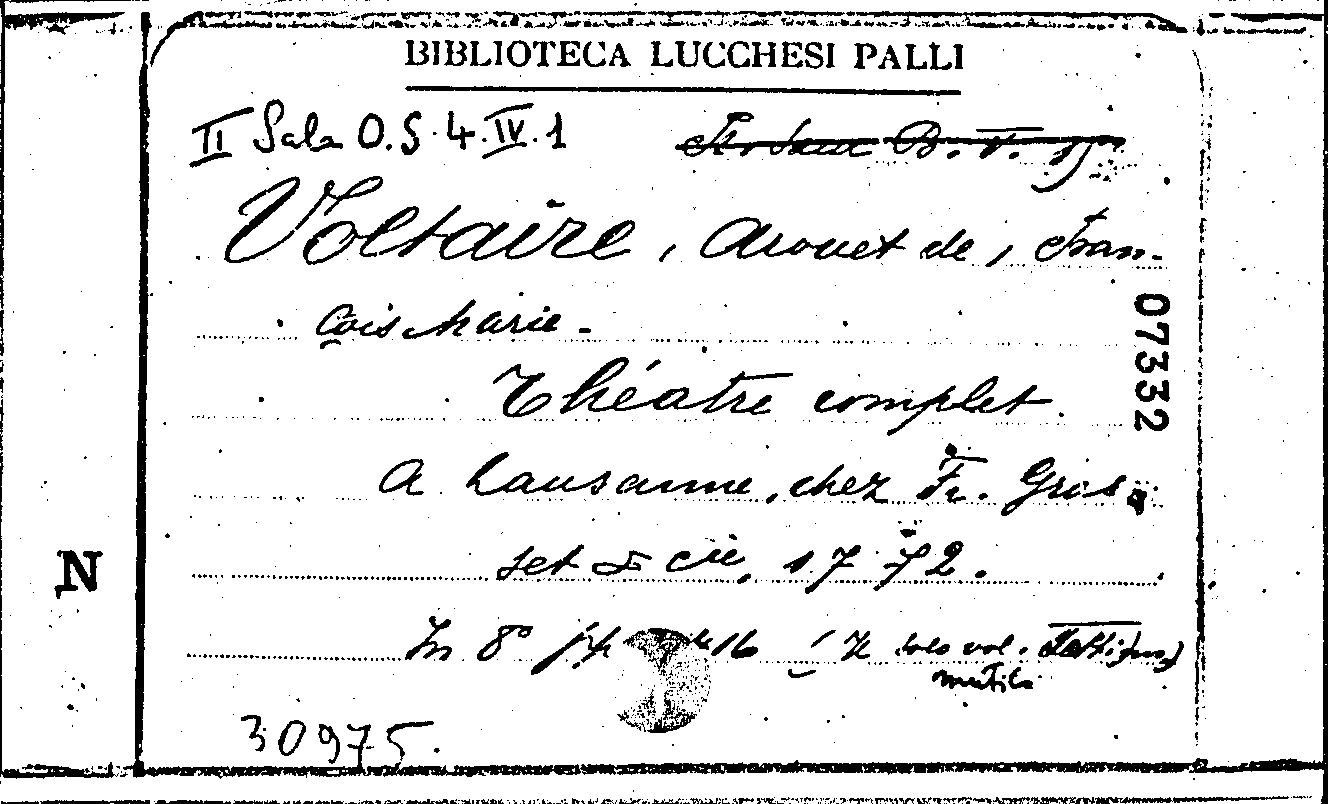 BIBLIOTECA LUCCHESI PALLI
II Sala O.S.4.IV.1 B. V.
Voltaire, Arouet de, Fran-
çois Marie.
07332
Théatre complet
A Lausanne, chez Fr. Gras-
set & cie, 1772.
N
In 8° pp 416 solo vol.
mutilo
30975.